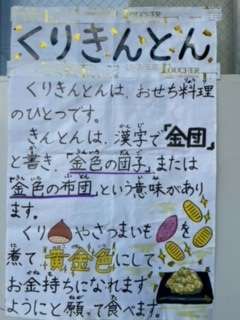 くりきんとん
くりきんとんは、おせち料理
のひとつです。
きんとんは、漢字で「金団」
と書き、「金色の団子」または
金色の布団」という意味があり
ます。
くりやさつまいもを
煮て、黄金色にして
お金持ちになれます
ようにと願って食べます。